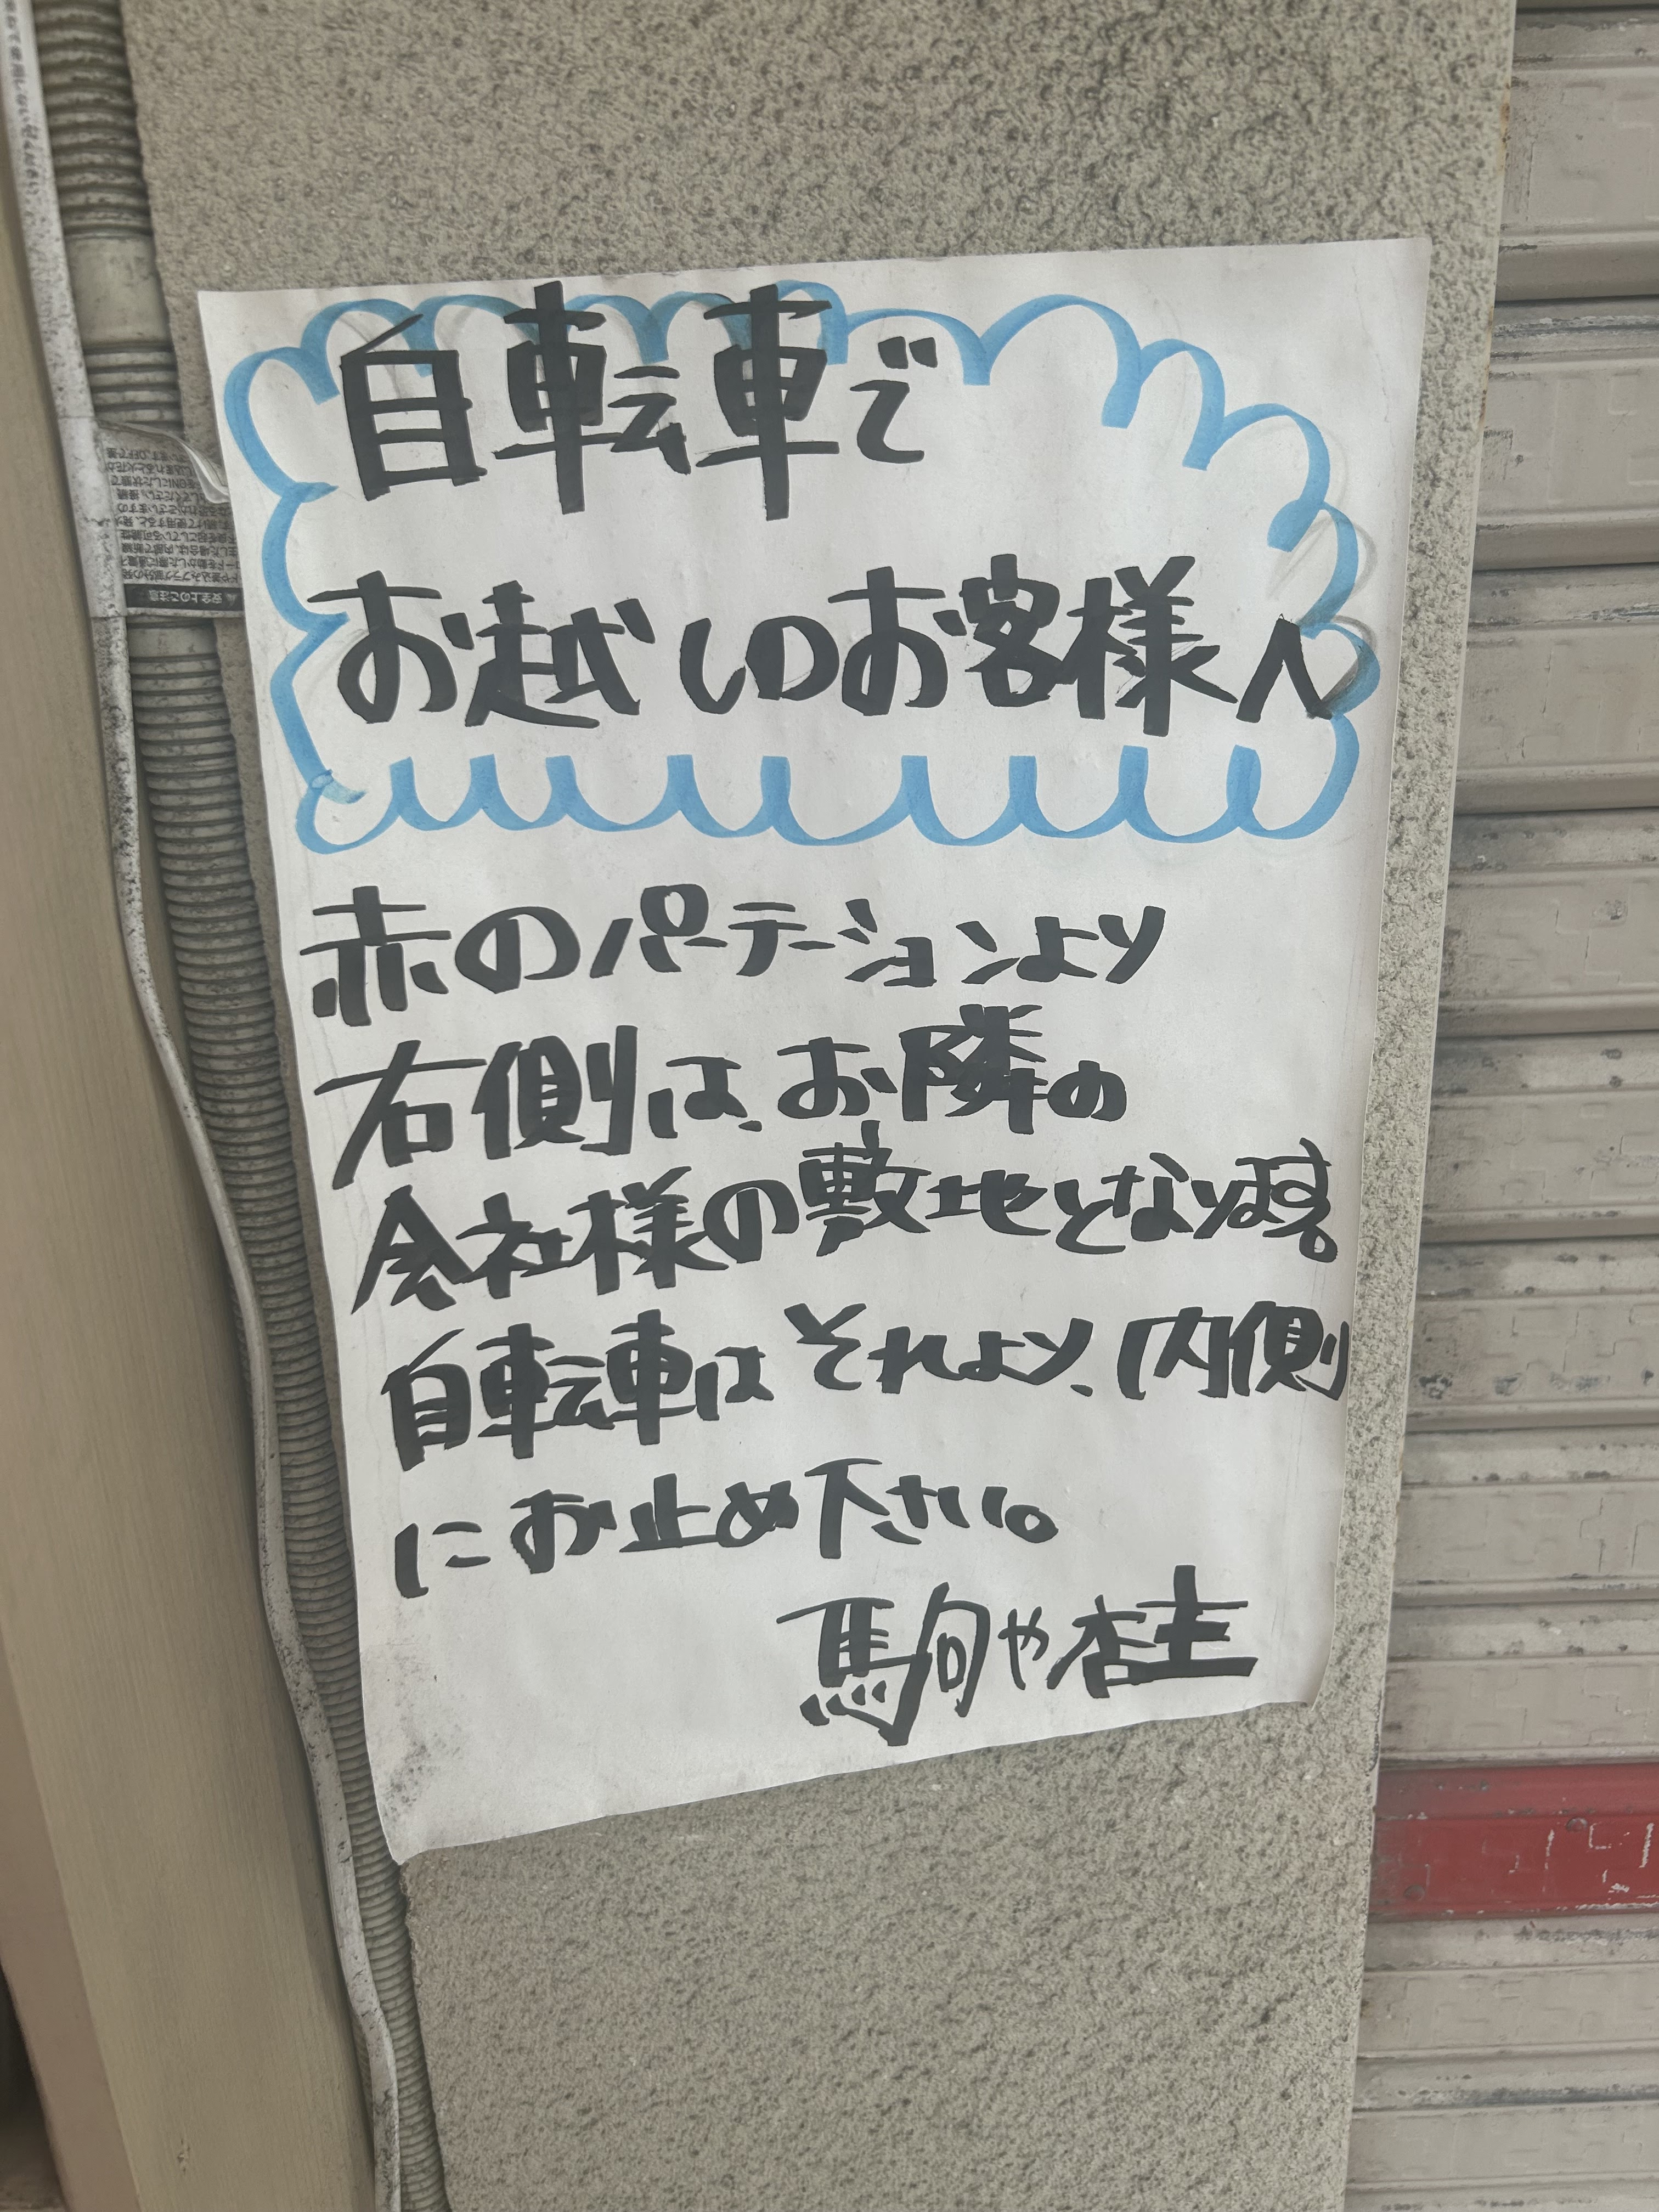 自転車で
お越しのお客様へ
赤のパーテーションより
右側は、お隣の
会社様の敷地となります。
自転車はそれより、内側
にお止め下さい。
駒や店主
安全上のご注意